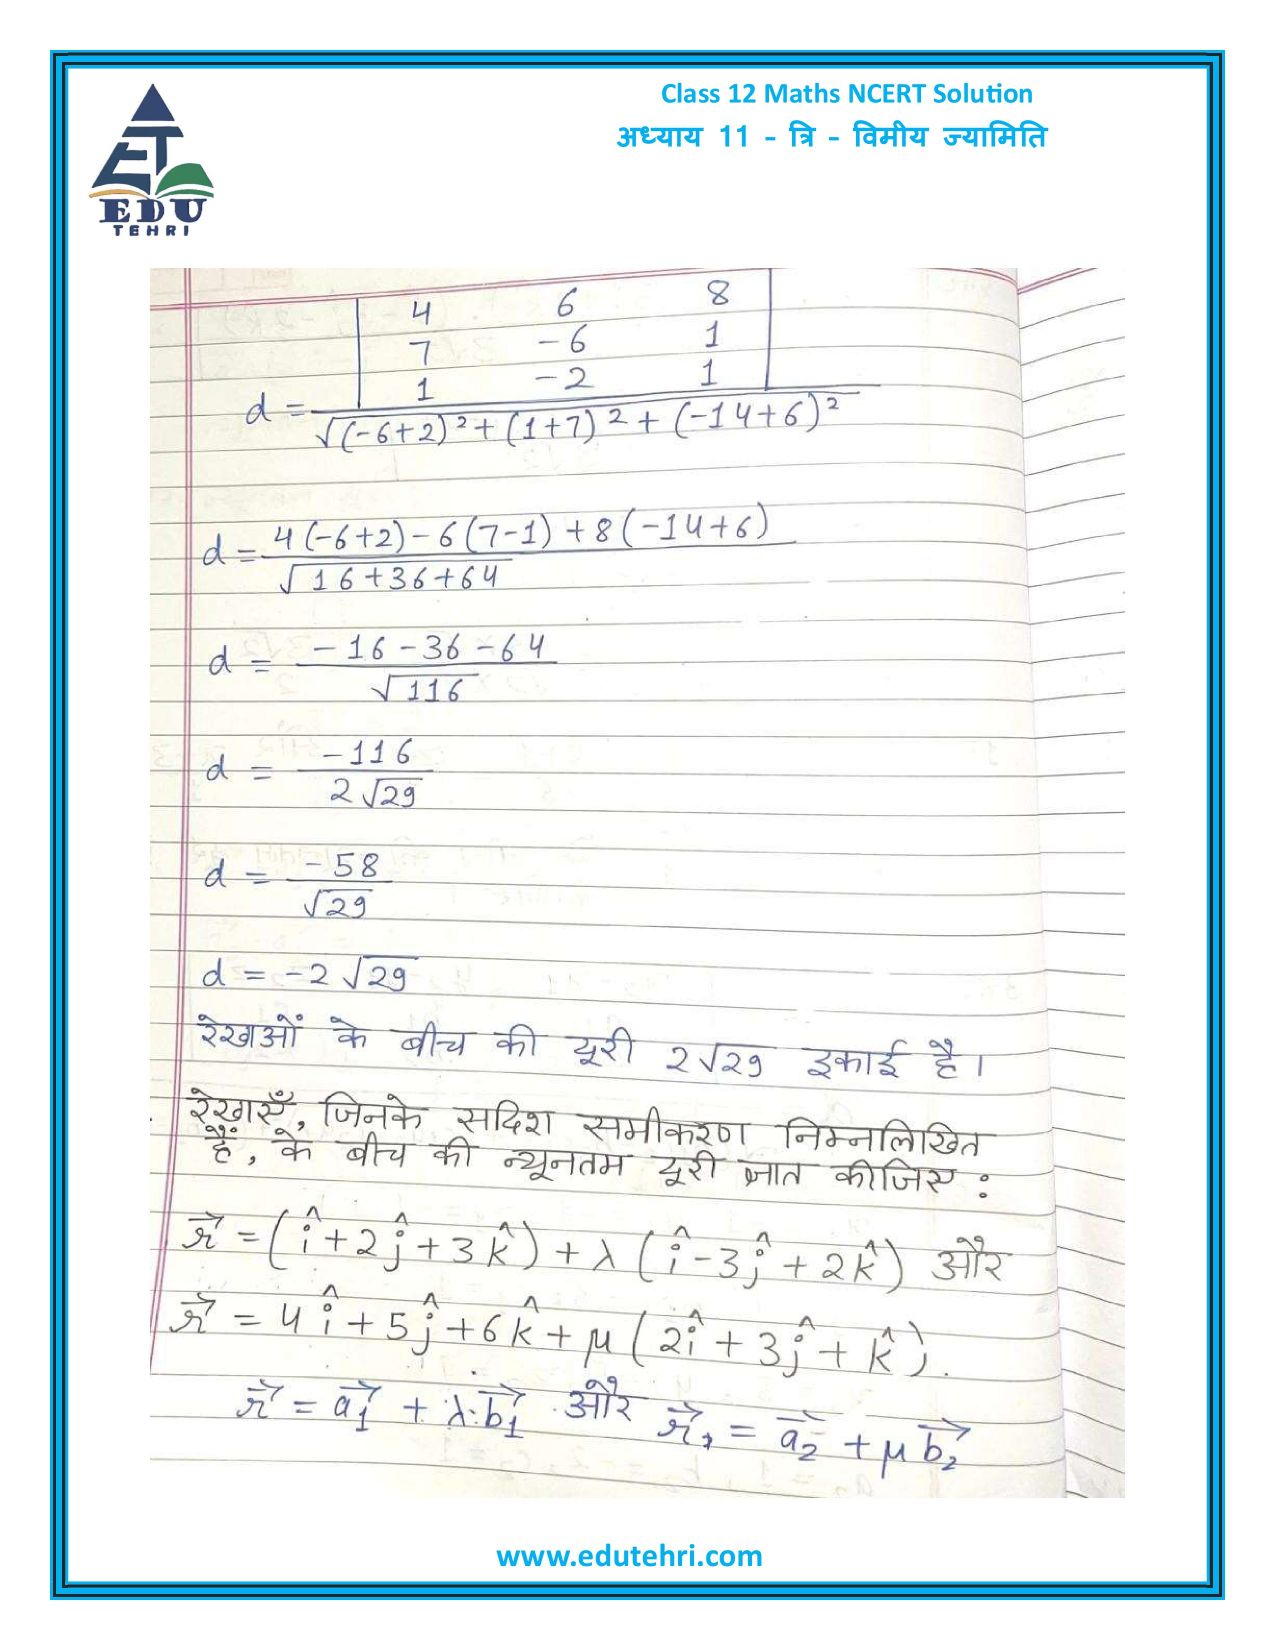 Class 12 Maths NCERT Solution
अध्याय 11 - त्रि - विमीय ज्यामिति
EDU
TEHRI
4 6 8
7 -6 1
1 -2 1
d = 
√(-6+2)² + (1+7)² + (-14+6)²
d = 4(-6+2) - 6(7-1) + 8(-14+6)
√16+36+64
d = -16-36-64
√116
d = -116
2√29
d = -58
√29
d = -2√29
रेखाओं के बीच की दूरी 2√29 इकाई है।
रेखाएँ, जिनके सदिश समीकरण निम्नलिखित
हैं, के बीच की न्यूनतम दूरी ज्ञात कीजिए :
r⃗ = (î+2ĵ+3k̂) + λ(î-3ĵ+2k̂) और
r⃗ = 4î+5ĵ+6k̂+μ(2î+3ĵ+k̂).
r⃗ = a⃗₁ + λ·b⃗₁ और r⃗₂ = a⃗₂ + μb⃗₂
www.edutehri.com